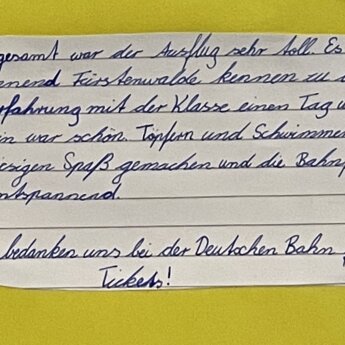 gesamt war der Ausflug sehr toll. Es
nenend Fürstenwalde kennen zu
rfahrung mit der Klasse einen Tag
in war schön. Töpfern und Schwimmen
iesigen Spaß gemachen und die Bahnf
ntspannend.
bedanken uns bei der Deutschen Bahn
Tickets!